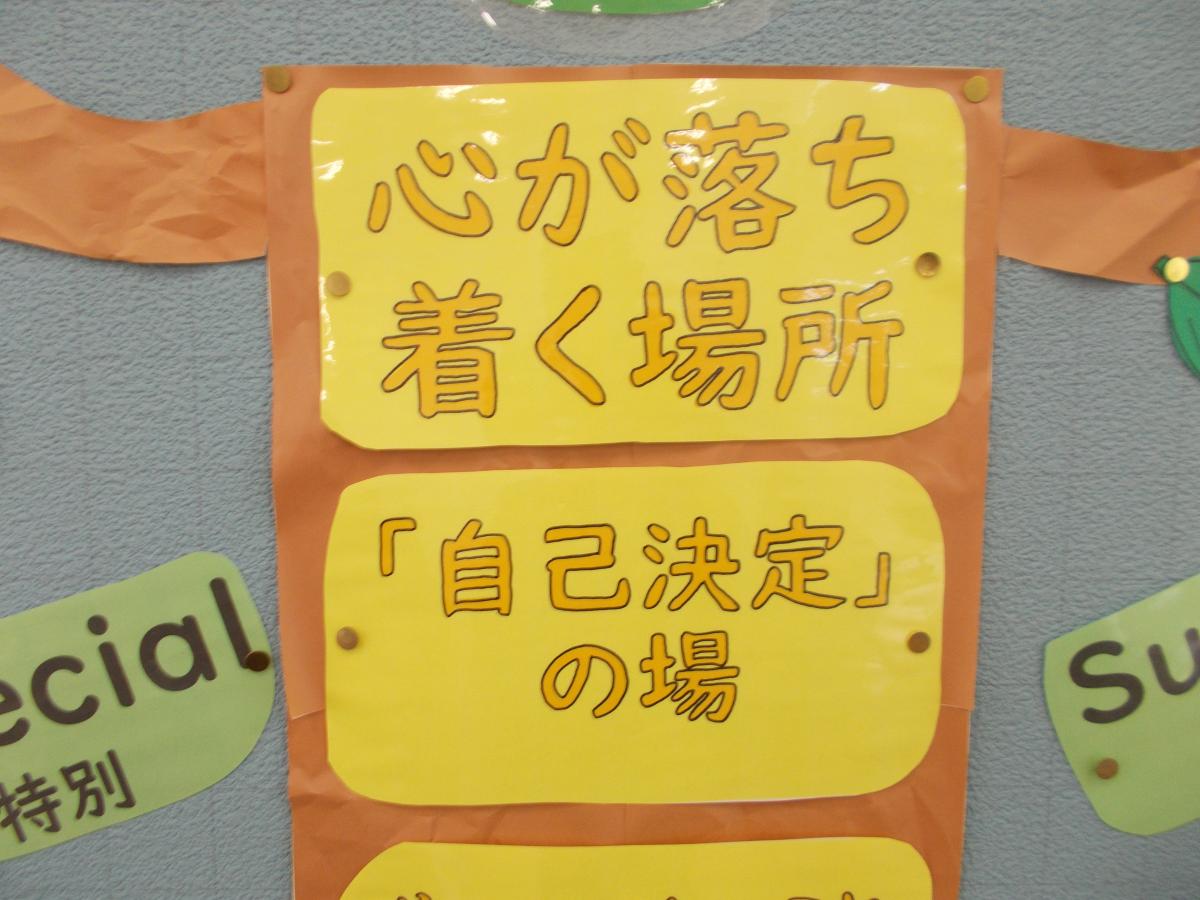 心が落ち
着く場所
「自己決定」
の場
ecial
特別
Su